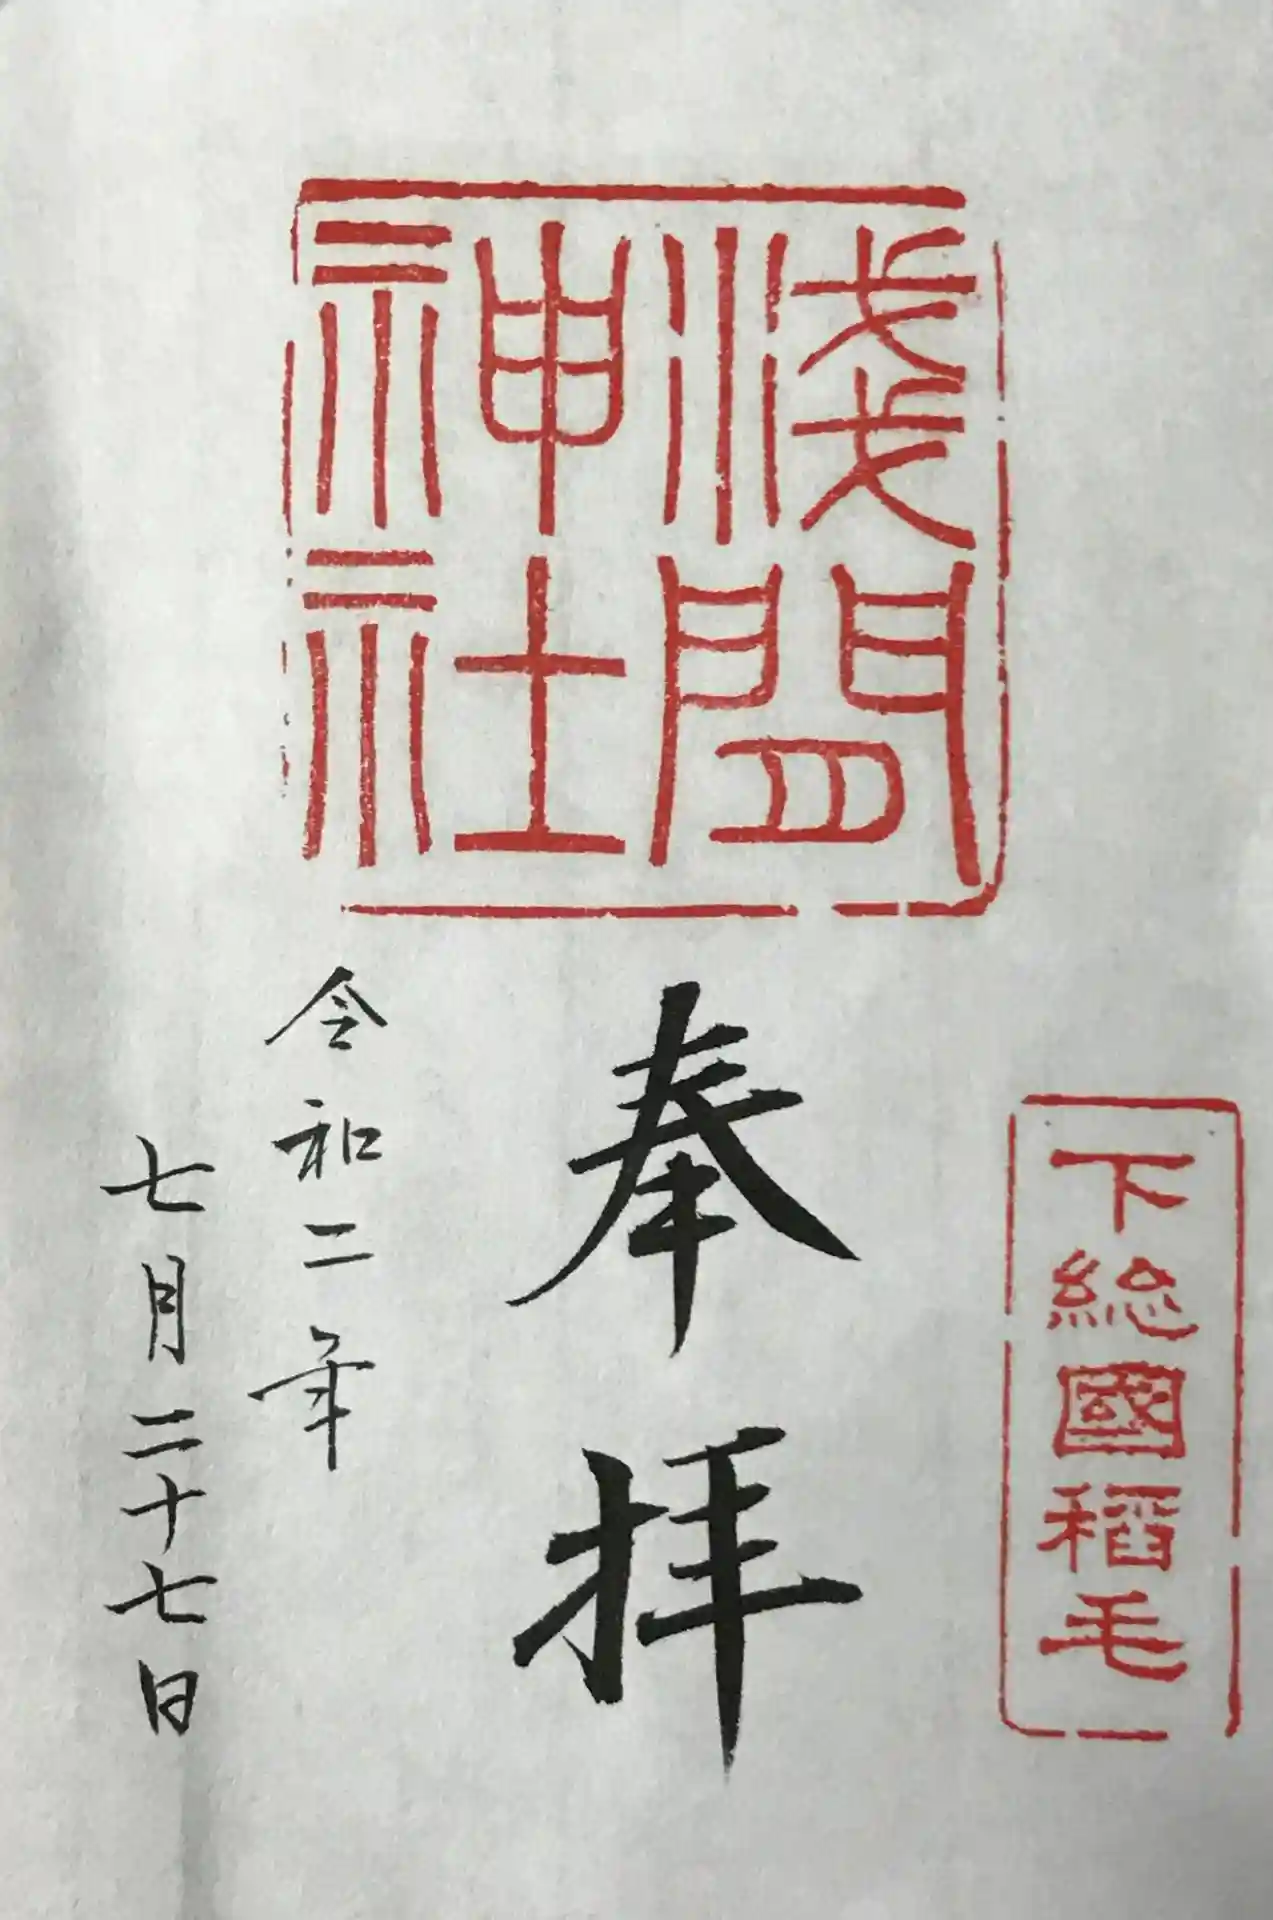 下総國稲毛
淺間
神社
奉拝
令和二年
七月二十七日